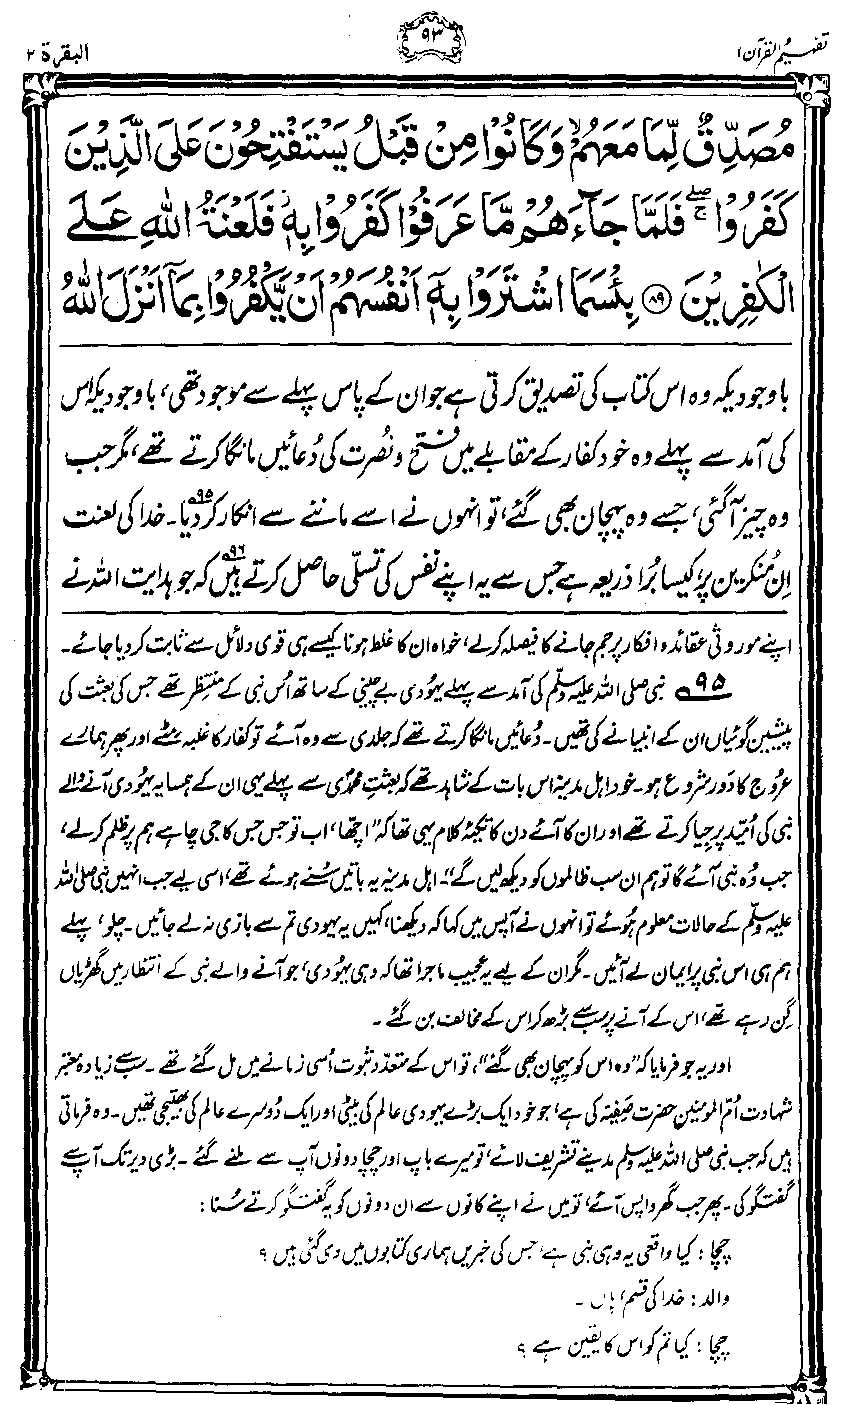 تفہیم القرآن ۱
۹۳
البقرۃ ۲
مُصَدِّقٌ لِّمَا مَعَهُمْ ۙ وَكَانُوْا مِنْ قَبْلُ يَسْتَفْتِحُوْنَ عَلَى الَّذِيْنَ
كَفَرُوْا ۚۖ فَلَمَّا جَآءَهُمْ مَّا عَرَفُوْا كَفَرُوْا بِهٖ ۫ فَلَعْنَةُ اللّٰهِ عَلَى
الْكٰفِرِيْنَ ۝۸۹ بِئْسَمَا اشْتَرَوْا بِهٖٓ اَنْفُسَهُمْ اَنْ يَّكْفُرُوْا بِمَآ اَنْزَلَ اللّٰهُ
باوجودیکہ وہ اس کتاب کی تصدیق کرتی ہے جو ان کے پاس پہلے سے موجود تھی، باوجودیکہ اس
کی آمد سے پہلے وہ خود کفار کے مقابلے میں فتح و نصرت کی دُعائیں مانگا کرتے تھے، مگر جب
وہ چیز آگئی، جسے وہ پہچان بھی گئے، تو انہوں نے اسے ماننے سے انکار کر دیا۹۵۔ خدا کی لعنت
اِن مُنکرین پر، کیسا بُرا ذریعہ ہے جس سے یہ اپنے نفس کی تسلّی حاصل کرتے ہیں۹۶ کہ جو ہدایت اللہ نے
اپنے موروثی عقائد و افکار پر جم جانے کا فیصلہ کر لے، خواہ ان کا غلط ہونا کیسے ہی قوی دلائل سے ثابت کر دیا جائے۔
۹۵ نبی صلی اللہ علیہ وسلّم کی آمد سے پہلے یہودی بے چینی کے ساتھ اُس نبی کے منتظر تھے جس کی بعثت کی
پیشین گوئیاں ان کے انبیا نے کی تھیں۔ دُعائیں مانگا کرتے تھے کہ جلدی سے وہ آئے تو کفار کا غلبہ مٹے اور پھر ہمارے
عروج کا دَور شروع ہو۔ خود اہل مدینہ اس بات کے شاہد تھے کہ بعثتِ محمدؐی سے پہلے یہی ان کے ہمسایہ یہودی آنے والے
نبی کی اُمّید پر جیا کرتے تھے اور ان کا آئے دن کا تکیۂ کلام یہی تھا کہ "اچھا، اب تو جس جس کا جی چاہے ہم پر ظلم کر لے،
جب وُہ نبی آئے گا تو ہم ان سب ظالموں کو دیکھ لیں گے"۔ اہل مدینہ یہ باتیں سُنے ہوئے تھے، اسی لیے جب انہیں نبی صلی اللہ
علیہ وسلّم کے حالات معلوم ہُوئے تو انہوں نے آپس میں کہا کہ دیکھنا، کہیں یہ یہودی تم سے بازی نہ لے جائیں۔ چلو، پہلے
ہم ہی اس نبی پر ایمان لے آئیں۔ مگر ان کے لیے یہ عجیب ماجرا تھا کہ وہی یہُودی، جو آنے والے نبی کے انتظار میں گھڑیاں
گِن رہے تھے، اس کے آنے پر سب سے بڑھ کر اس کے مخالف بن گئے۔
اور یہ جو فرمایا کہ "وہ اس کو پہچان بھی گئے"، تو اس کے متعدّد ثبوت اُسی زمانے میں مل گئے تھے۔ سب سے زیادہ معتبر
شہادت اُمّ المومنین حضرت صَفِیّہ کی ہے، جو خود ایک بڑے یہودی عالم کی بیٹی اور ایک دُوسرے عالم کی بھتیجی تھیں۔ وہ فرماتی
ہیں کہ جب نبی صلی اللہ علیہ وسلم مدینے تشریف لائے، تو میرے باپ اور چچا دونوں آپ سے ملنے گئے۔ بڑی دیر تک آپ سے
گفتگو کی۔ پھر جب گھر واپس آئے، تو میں نے اپنے کانوں سے ان دونوں کو یہ گفتگو کرتے سُنا:
چچا: کیا واقعی یہ وہی نبی ہے، جس کی خبریں ہماری کتابوں میں دی گئی ہیں؟
والد: خدا کی قسم، ہاں۔
چچا: کیا تم کو اس کا یقین ہے؟